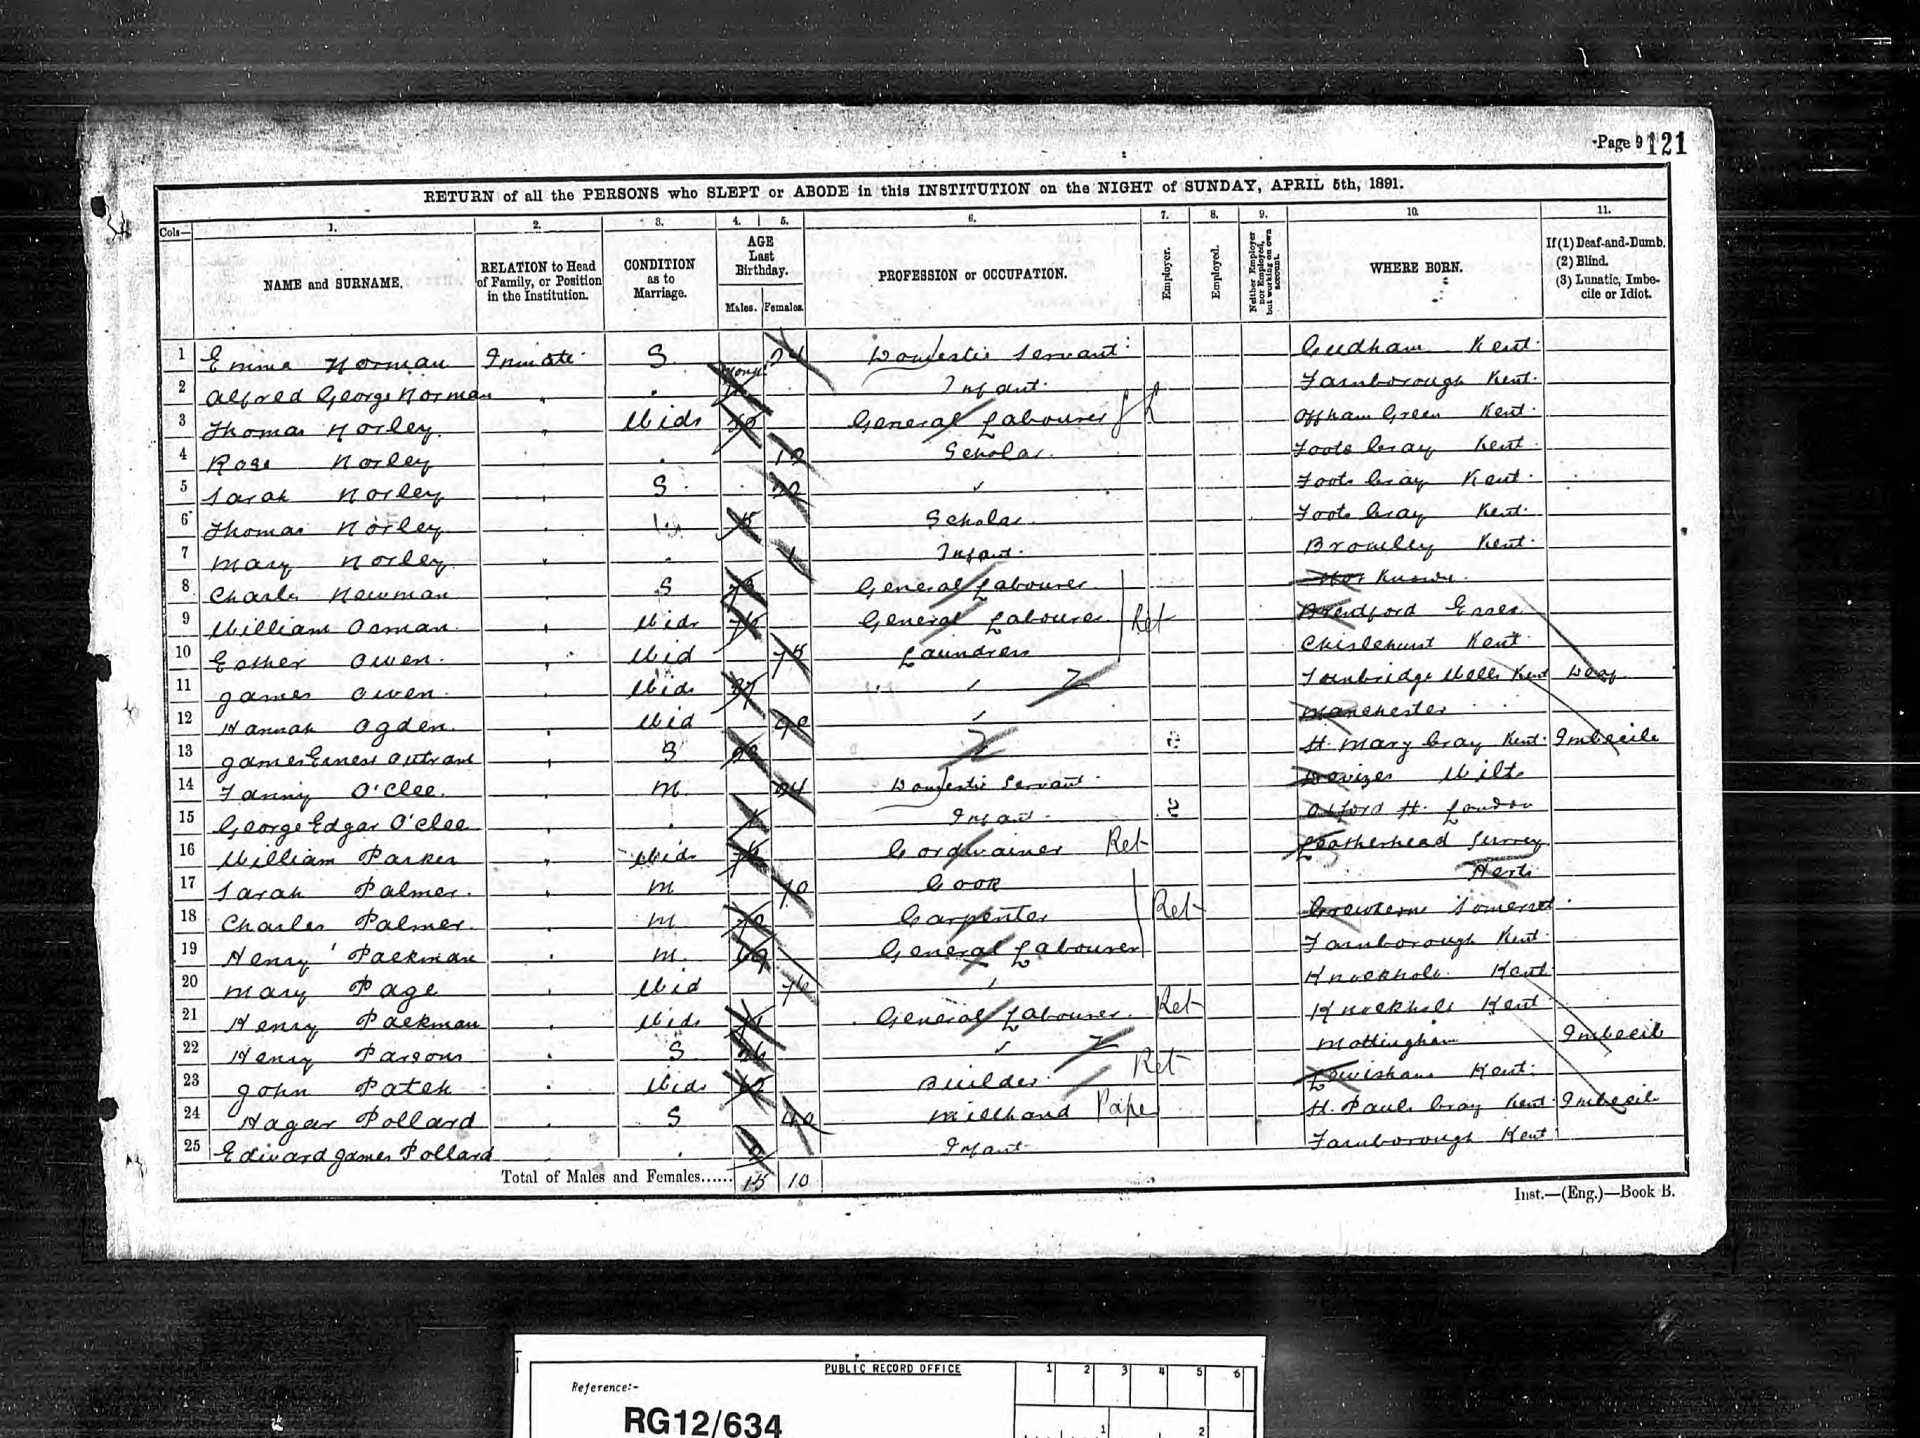 Page 9 121
RETURN of all the PERSONS who SLEPT or ABODE in this INSTITUTION on the NIGHT of SUNDAY, APRIL 5th, 1891.
Cols— 1. 2. 3. 4. 5. 6. 7. 8. 9. 10. 11.
NAME and SURNAME.
RELATION to Head of Family, or Position in the Institution.
CONDITION as to Marriage.
AGE Last Birthday.
Males. Females.
PROFESSION or OCCUPATION.
Employer.
Employed.
Neither Employer nor Employed, but working on own account.
WHERE BORN.
If (1) Deaf-and-Dumb.
(2) Blind.
(3) Lunatic, Imbecile or Idiot.
1 Emma Norman Inmate S 24 Domestic Servant Cudham Kent
2 Alfred George Norman " Infant Farnborough Kent
3 Thomas Norley " Widr General Labourer Offham Green Kent
4 Rose Norley " Scholar Foots Cray Kent
5 Sarah Norley " S Foots Cray Kent
6 Thomas Norley " Scholar Foots Cray Kent
7 Mary Norley " 1 Infant Bromley Kent
8 Charles Newman " S General Labourer Not Known
9 William Osman " Widr 76 General Labourer Ret Essex
10 Esther Owen " Wid 75 Laundress Chislehurst Kent
11 James Owen " Widr Tonbridge Wells Kent Deaf
12 Hannah Ogden " Wid 90 Manchester
13 James Ernest Outram " S St. Mary Cray Kent Imbecile
14 Fanny O'Clee " M 24 Domestic Servant Devizes Wilts
15 George Edgar O'Clee " Infant Oxford St. London
16 William Parker " Widr Cordwainer Ret Leatherhead Surrey
17 Sarah Palmer " M 70 Cook Herts
18 Charles Palmer " M Carpenter Ret Crewkerne Somerset
19 Henry Packman " M 69 General Labourer Farnborough Kent
20 Mary Page " Wid 76 Knockholt Kent
21 Henry Packman " Widr General Labourer Ret Knockholt Kent
22 Henry Parsons " S 26 Mottingham Imbecile
23 John " Widr Builder Ret Lewisham Kent
24 Hagar Pollard " S 40 Millhand Paper St. Pauls Cray Kent Imbecile
25 Edward James Pollard " Infant Farnborough Kent
Total of Males and Females...... 15 10
Inst.—(Eng.)—Book B.
PUBLIC RECORD OFFICE 1 2 3 4 5 6
Reference:-
1 2
RG12/634